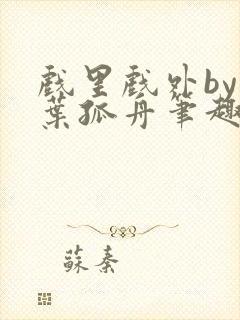 戲里戲外by
葉孤舟筆趣
蘇秦